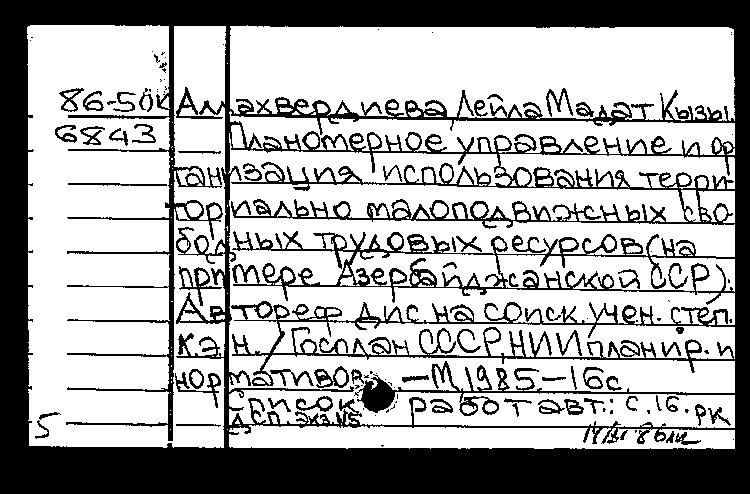 86-50к Аллахвердиева Лейла Мадат Кызы.
6843 Планомерное управление и ор
ганизация использования терри-
ториально малоподвижных сво-
бодных трудовых ресурсов (на
примере Азербайджанской ССР).
Автореф дис. на соиск. учен. степ.
к.э.н. / Госплан СССР, НИИ планир. и
нормативов. — М, 1985. — 16с.
Список работ авт.: с. 16. рк
5 ДСП. экз. №5